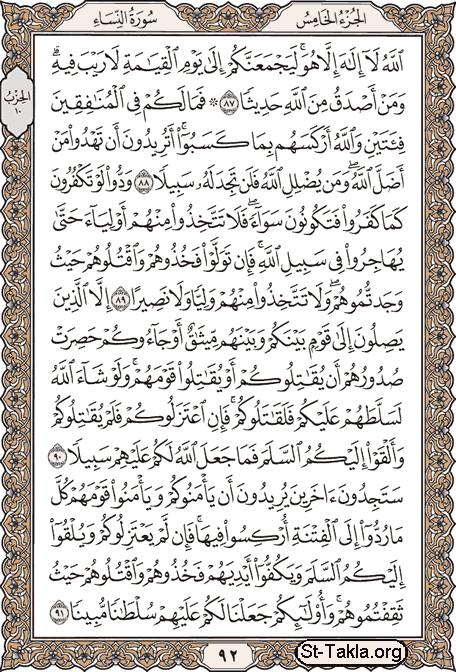 سُورَةُ النِّسَاءِ
الجُزْءُ الخَامِسُ
الحِزْبُ
١٠
ٱللَّهُ لَآ إِلَٰهَ إِلَّا هُوَۚ لَيَجْمَعَنَّكُمْ إِلَىٰ يَوْمِ ٱلْقِيَٰمَةِ لَا رَيْبَ فِيهِۗ
وَمَنْ أَصْدَقُ مِنَ ٱللَّهِ حَدِيثًا ٨٧ ۞ فَمَا لَكُمْ فِى ٱلْمُنَٰفِقِينَ
فِئَتَيْنِ وَٱللَّهُ أَرْكَسَهُم بِمَا كَسَبُوٓا۟ۚ أَتُرِيدُونَ أَن تَهْدُوا۟ مَنْ
أَضَلَّ ٱللَّهُۖ وَمَن يُضْلِلِ ٱللَّهُ فَلَن تَجِدَ لَهُۥ سَبِيلًا ٨٨ وَدُّوا۟ لَوْ تَكْفُرُونَ
كَمَا كَفَرُوا۟ فَتَكُونُونَ سَوَآءًۖ فَلَا تَتَّخِذُوا۟ مِنْهُمْ أَوْلِيَآءَ حَتَّىٰ
يُهَاجِرُوا۟ فِى سَبِيلِ ٱللَّهِۚ فَإِن تَوَلَّوْا۟ فَخُذُوهُمْ وَٱقْتُلُوهُمْ حَيْثُ
وَجَدتُّمُوهُمْۖ وَلَا تَتَّخِذُوا۟ مِنْهُمْ وَلِيًّا وَلَا نَصِيرًا ٨٩ إِلَّا ٱلَّذِينَ
يَصِلُونَ إِلَىٰ قَوْمٍۭ بَيْنَكُمْ وَبَيْنَهُم مِّيثَٰقٌ أَوْ جَآءُوكُمْ حَصِرَتْ
صُدُورُهُمْ أَن يُقَٰتِلُوكُمْ أَوْ يُقَٰتِلُوا۟ قَوْمَهُمْۚ وَلَوْ شَآءَ ٱللَّهُ
لَسَلَّطَهُمْ عَلَيْكُمْ فَلَقَٰتَلُوكُمْۚ فَإِنِ ٱعْتَزَلُوكُمْ فَلَمْ يُقَٰتِلُوكُمْ
وَأَلْقَوْا۟ إِلَيْكُمُ ٱلسَّلَمَ فَمَا جَعَلَ ٱللَّهُ لَكُمْ عَلَيْهِمْ سَبِيلًا ٩٠
سَتَجِدُونَ ءَاخَرِينَ يُرِيدُونَ أَن يَأْمَنُوكُمْ وَيَأْمَنُوا۟ قَوْمَهُمْ كُلَّ
مَا رُدُّوٓا۟ إِلَى ٱلْفِتْنَةِ أُرْكِسُوا۟ فِيهَاۚ فَإِن لَّمْ يَعْتَزِلُوكُمْ وَيُلْقُوٓا۟
إِلَيْكُمُ ٱلسَّلَمَ وَيَكُفُّوٓا۟ أَيْدِيَهُمْ فَخُذُوهُمْ وَٱقْتُلُوهُمْ حَيْثُ
ثَقِفْتُمُوهُمْۚ وَأُو۟لَٰٓئِكُمْ جَعَلْنَا لَكُمْ عَلَيْهِمْ سُلْطَٰنًا مُّبِينًا ٩١
٩٢
St-Takla.org